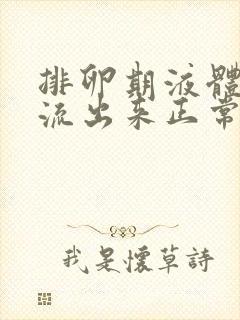 排卵期液體
流出来正常
我是懷草詩